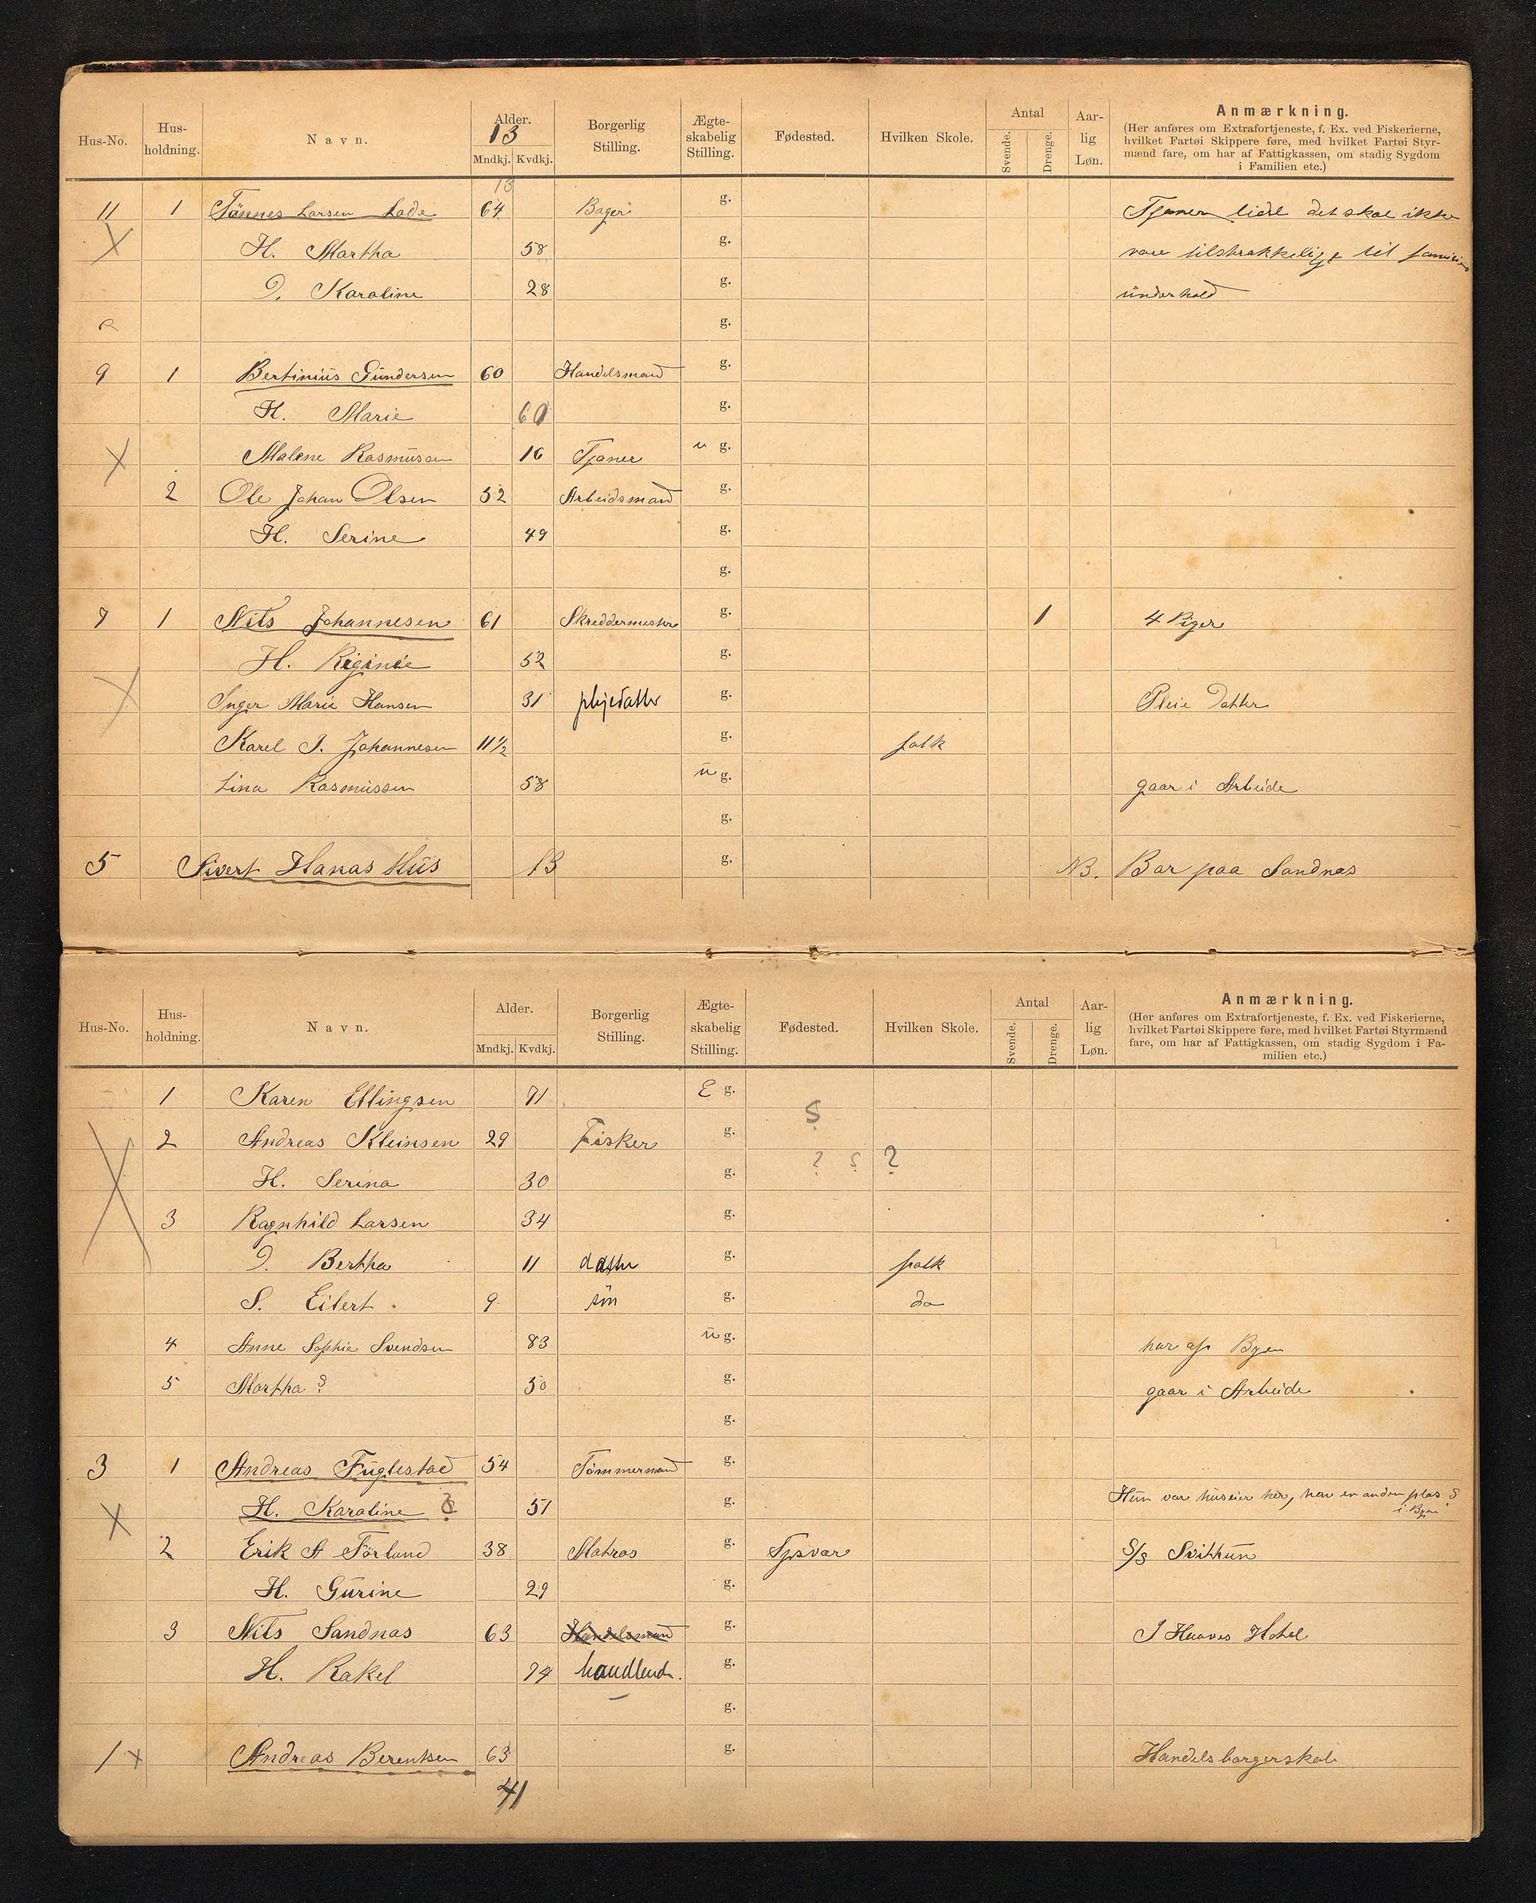 Hus-No. Hus-holdning. Navn. Alder. Mndkj. Kvdkj. Borgerlig Stilling. Ægte-skabelig Stilling. Fødested. Hvilken Skole. Antal Svende. Drenge. Aar-lig Løn. Anmærkning.
(Her anføres om Extrafortjeneste, f. Ex. ved Fiskerierne,
hvilket Fartøi Skippere føre, med hvilket Fartøi Styr-
mænd fare, om har af Fattigkassen, om stadig Sygdom
i Familien etc.)
13
13
11 1 Tönnes Larsen Lade 64 Bager g. Tjener lidt det skal ikke
H. Martha 58 g. være tilstrækkelige til familiens
D. Karoline 28 g. underhold
g.
9 1 Bertinius Gundersen 60 Handelsmand g.
H. Marie 60 g.
Malene Rasmussen 16 Tjener u g.
2 Ole Johan Olsen 52 Arbeidsmand g.
H. Serine 49 g.
g.
7 1 Nils Johannesen 61 Skreddermester g. 1 4 Piger
H. Riginie 52 g.
Inger Marie Hansen 31 plejedatter g. Pleie Datter
Karel J. Johannesen 11 1/2 g. folk
Lina Rasmussen 58 u g. gaar i Arbeide
g.
5 Sivert Hanas Hus 13 g. NB. Bor paa Sandnæs
Hus-No. Hus-holdning. Navn. Alder. Mndkj. Kvdkj. Borgerlig Stilling. Ægte-skabelig Stilling. Fødested. Hvilken Skole. Antal Svende. Drenge. Aar-lig Løn. Anmærkning.
(Her anføres om Extrafortjeneste, f. Ex. ved Fiskerierne,
hvilket Fartøi Skippere føre, med hvilket Fartøi Styrmænd
fare, om har af Fattigkassen, om stadig Sygdom i Fa-
milien etc.)
1 Karen Ellingsen 71 E g.
?
2 Andreas Kleinsen 29 Fisker g.
? ? ?
H. Serina 30 g.
3 Ragnhild Larsen 34 g.
D. Bertha 11 datter g. folk
S. Eilert 9 sön g. do
4 Anne Sophie Svendsen 83 u g. har af Byen
5 Martha ? 50 g. gaar i Arbeide
g.
3 1 Andreas Fuglestad 54 Tömmermand g.
H. Karoline ? 51 g. Hun var huseier her, har en anden plas ? i Byen
2 Erik A Förland 38 Matros g. Tysvær S/S Svithun
H. Gurine 29 g.
3 Nils Sandnæs 63 Handelsmand g. I Haaves Hotel
H. Rakel 74 handlende. g.
g.
1 Andreas Berentsen 63 g. Handelsborgerskab
41